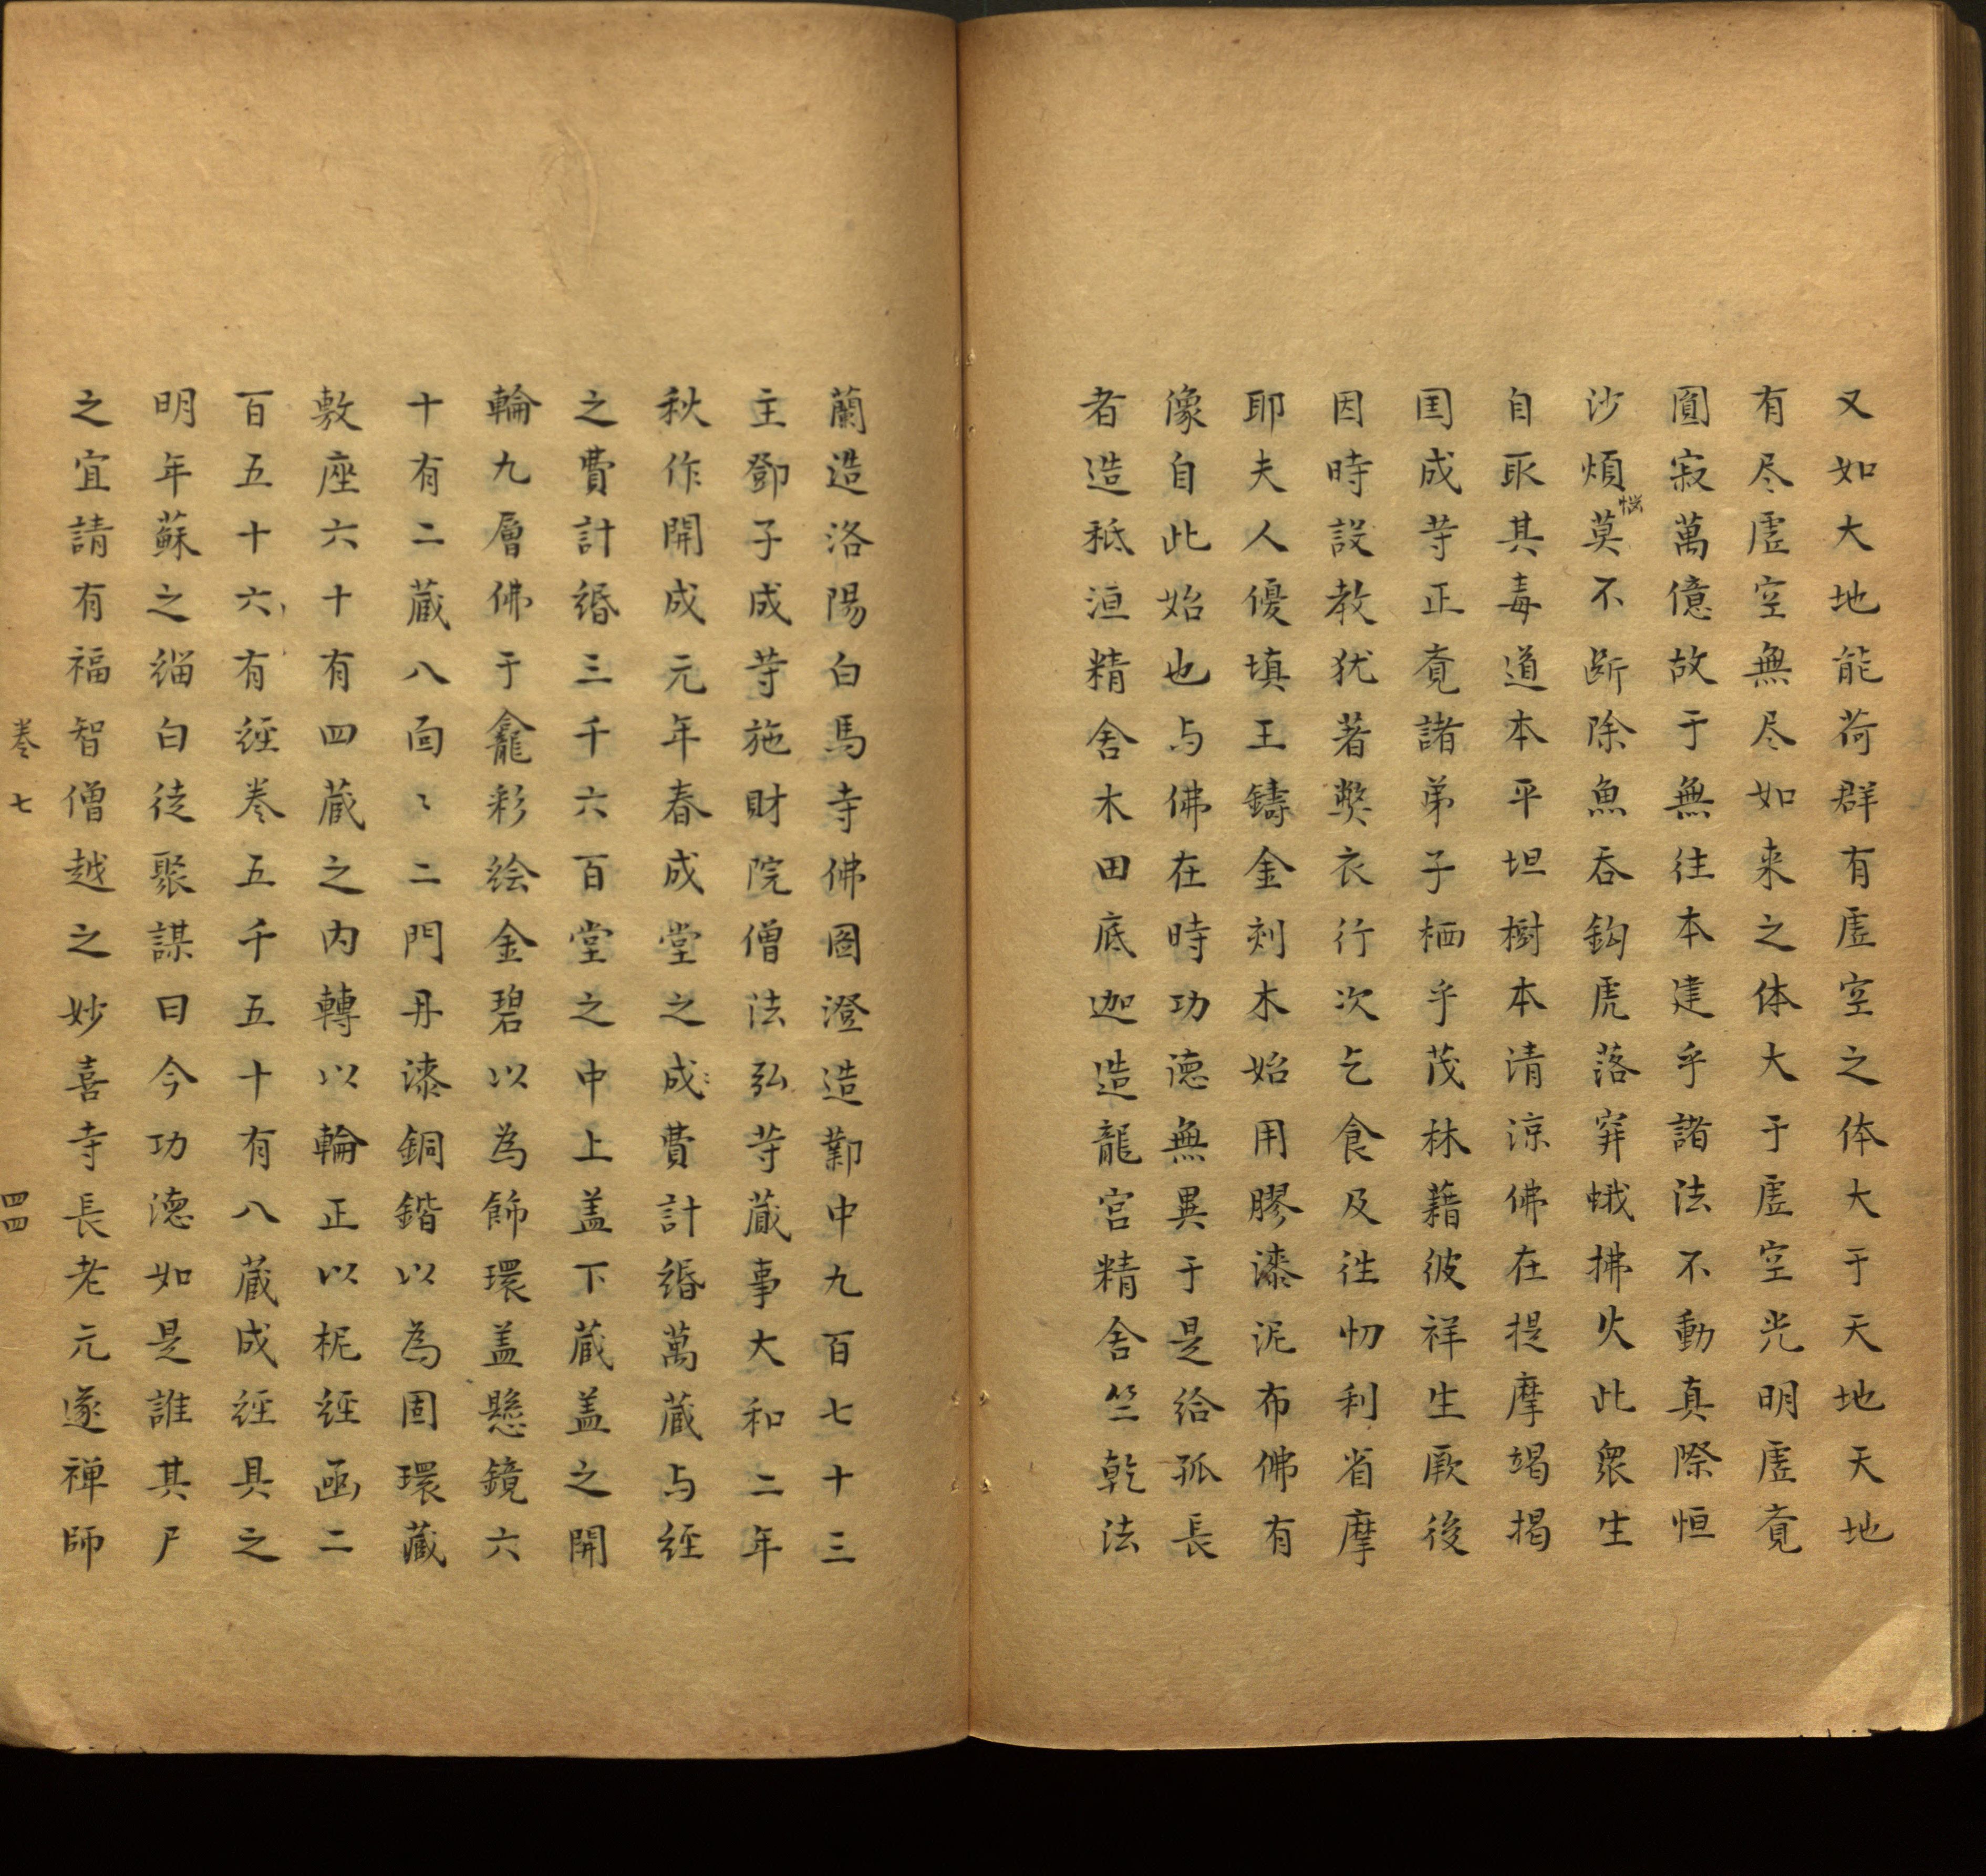 又如大地能荷群有虛空之体大于天地天地
有尽虛空無尽如来之体大于虛空光明虛覔
圓寂萬億故于無往本建乎諸法不動真際恒
沙煩惱莫不断除魚吞鈎虎落穽蛾拂火此衆生
自取其毒道本平坦樹本清涼佛在提摩竭揭
囯成䒭正覔諸弟子栖乎茂林藉彼祥生厥後
因時設教犹著獘衣行次乞食及徃忉利省摩
耶夫人優填王鑄金刻木始用膠漆泥布佛有
像自此始也与佛在時功德無異于是给孤長
者造秪洹精舍木田底迦造龍宫精舍竺乾法
蘭造洛陽白馬寺佛圖澄造鄴中九百七十三
主鄧子成䒭施財院僧法弘䒭蔵事大和二年
秋作開成元年春成堂之成〻費計緡萬蔵与经
之費計緡三千六百堂之中上盖下蔵盖之開
輪九層佛于龕彩绘金碧以為飾環盖懸鏡六
十有二蔵八面〻二門丹漆銅鍇以為固環蔵
敷座六十有四蔵之内轉以輪正以柅经函二
百五十六有经卷五千五十有八蔵成经具之
明年蘇之緇白徒聚謀曰今功德如是誰其尸
之宜請有福智僧越之妙喜寺長老元遂禅師
卷七
四四